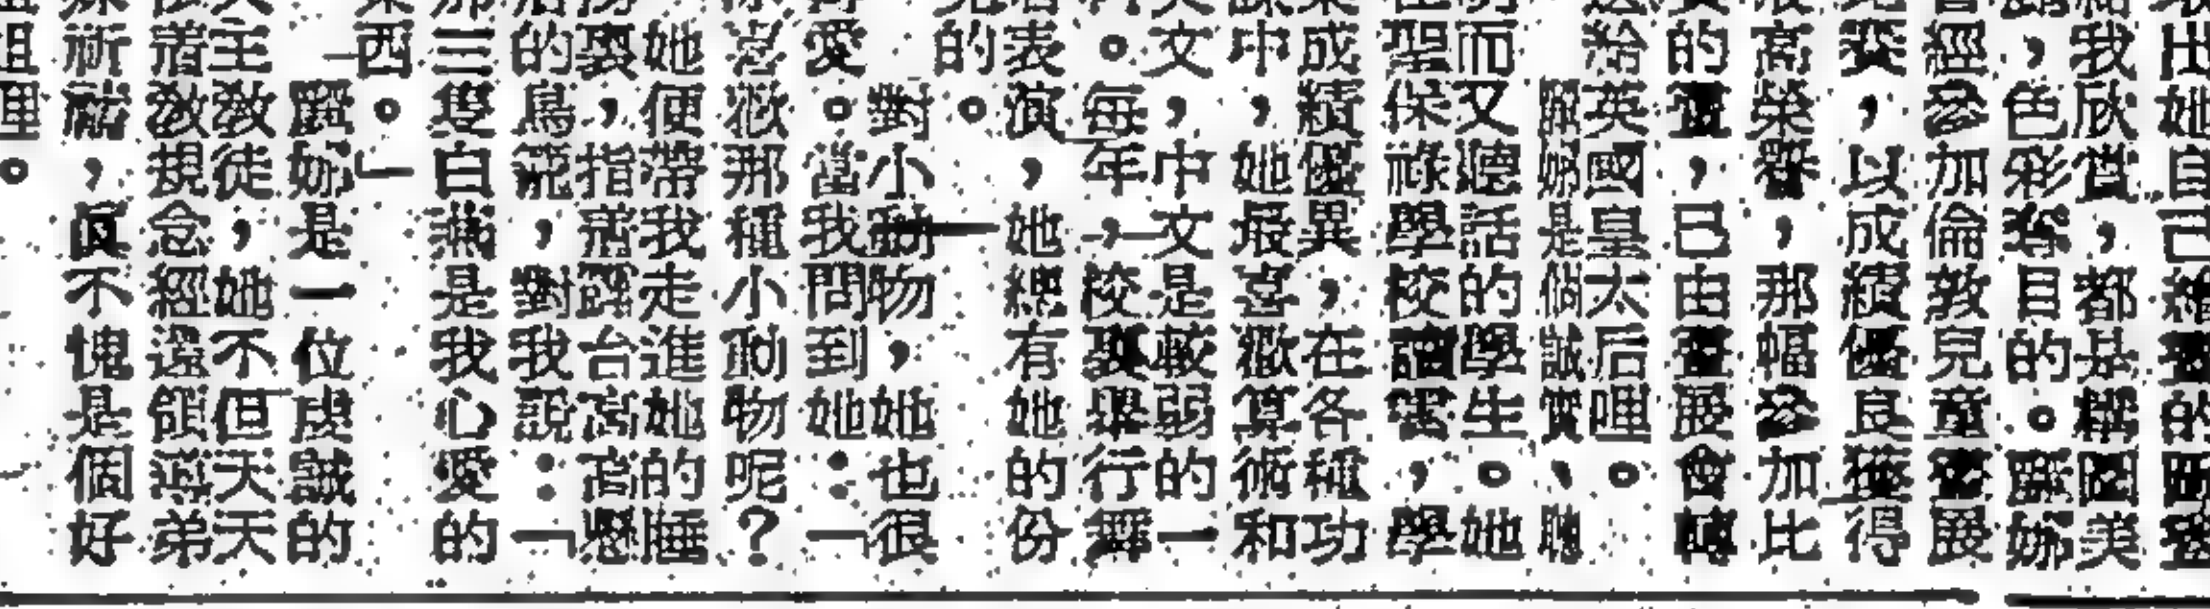 出她自己繪畫的
給我欣賞，都是
，色彩奪目的。麗娜
曾經參加倫敦兒童畫展
獎，以成績優良獲得
最高榮譽，那幅參加比
的畫，已由畫展會
送給英國皇太后哩。
麗娜是個誠實、聰
而又聽話的學生。她
在聖保祿學校讀書，學
業成績優異，在各種功
課中，她最喜歡算術和
英文，中文是較弱的一
。每年，校裏舉行
表演，她總有她的份
兒的。
對小動物，她也很
愛。當我問到她：「
你喜歡那種小動物呢？
她便帶我走進她的睡
房裏，指着露台高高懸
的鳥籠，對我說：「
那三隻白燕是我心愛的
東西。」
麗娜是一位虔誠的
天主教徒，她不但天天
教規念經還領導弟
妹祈禱，眞不愧是個好
姐哩。